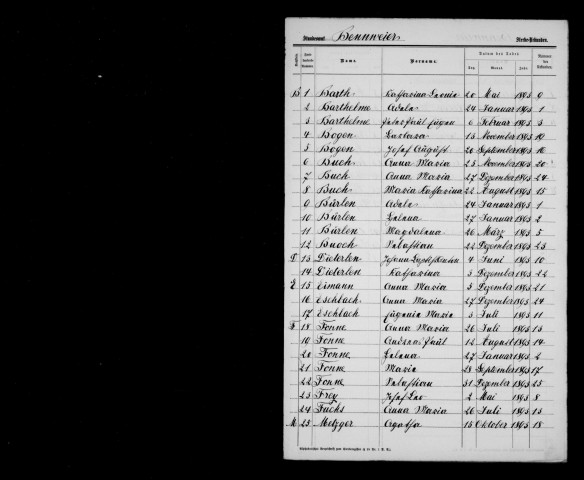 Standesamt Bennweier Sterbe-Urkunden.
Name. Vorname. Datum des Todes. Nummer der Urkunden.
Tag. Monat. Jahr.
B 1 Barth Katharina Leonie 20 Mai 1893 9
2 Barthelme Adele 24 Januar 1893 1
3 Barthelme Johann Paul Eugen 6 Februar 1893 3
4 Bogen Barbara 13 November 1893 19
5 Bogen Josef August 20 September 1893 16
6 Buch Anna Maria 23 November 1893 20
7 Buch Anna Maria 27 Dezember 1893 24
8 Buch Maria Katharina 22 August 1893 15
9 Bürlen Adele 24 Januar 1893 1
10 Bürlen Helena 27 Januar 1893 2
11 Bürlen Magdalena 26 März 1893 5
12 Busch Sebastian 22 Dezember 1893 23
D 13 Dieterlen Johann 4 Juni 1893 10
14 Dieterlen Katharina 5 Dezember 1893 22
E 15 Ermann Anna Maria 3 Dezember 1893 21
16 Eschbach Anna Maria 27 Dezember 1893 24
17 Eschbach Eugenie Maria 3 Juli 1893 11
F 18 Fonne Anna Maria 26 Juli 1893 13
19 Fonne Andreas Paul 12 August 1893 14
20 Fonne Helena 27 Januar 1893 2
21 Fonne Maria 28 September 1893 17
22 Fonne Sebastian 31 Dezember 1893 25
23 Frey Josef Leo 2 Mai 1893 8
24 Fuchs Anna Maria 26 Juli 1893 13
M 25 Metzger Agatha 15 Oktober 1893 18